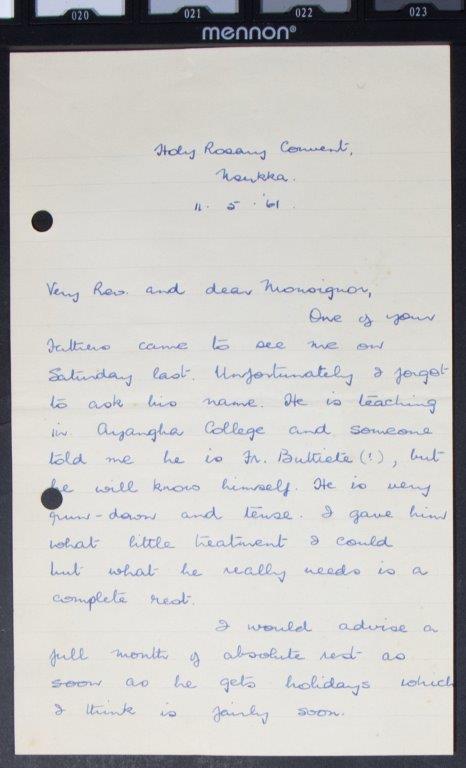 020 021 022 023
mennon®
Holy Rosary Convent,
Nsukka.
11. 5. '61.
Very Rev. and dear Monsignor,
One of your
Fathers came to see me on
Saturday last. Unfortunately I forgot
to ask his name. He is teaching
in Ayangha College and someone
told me he is Fr. Buttiete (!), but
he will know himself. He is very
run-down and tense. I gave him
what little treatment I could
but what he really needs is a
complete rest.
I would advise a
full month of absolute rest as
soon as he gets holidays which
I think is fairly soon.